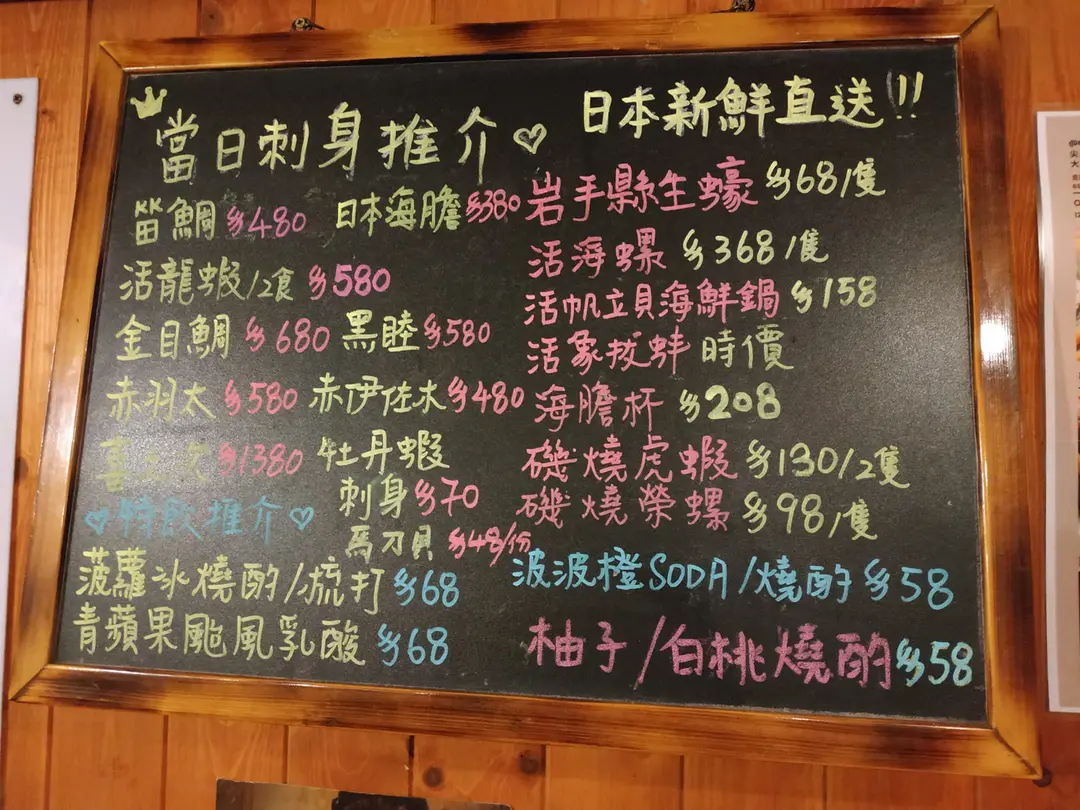 當日刺身推介♡
日本新鮮直送!!
笛鯛 $480 日本海膽 $380
活龍蝦/2食 $580
金目鯛 $680 黑睦 $580
赤羽太 $580 赤伊佐木 $480
喜 $1380 牡丹蝦
刺身 $70
馬刀貝 $48/份
岩手縣生蠔 $68/隻
活海螺 $368/隻
活帆立貝海鮮鍋 $158
活象拔蚌 時價
海膽杯 $208
磯燒虎蝦 $130/2隻
磯燒榮螺 $98/隻
♡特飲推介♡
菠蘿冰燒酌/梳打 $68
青蘋果颱風乳酸 $68
波波橙SODA/燒酌 $58
柚子/白桃燒酌 $58